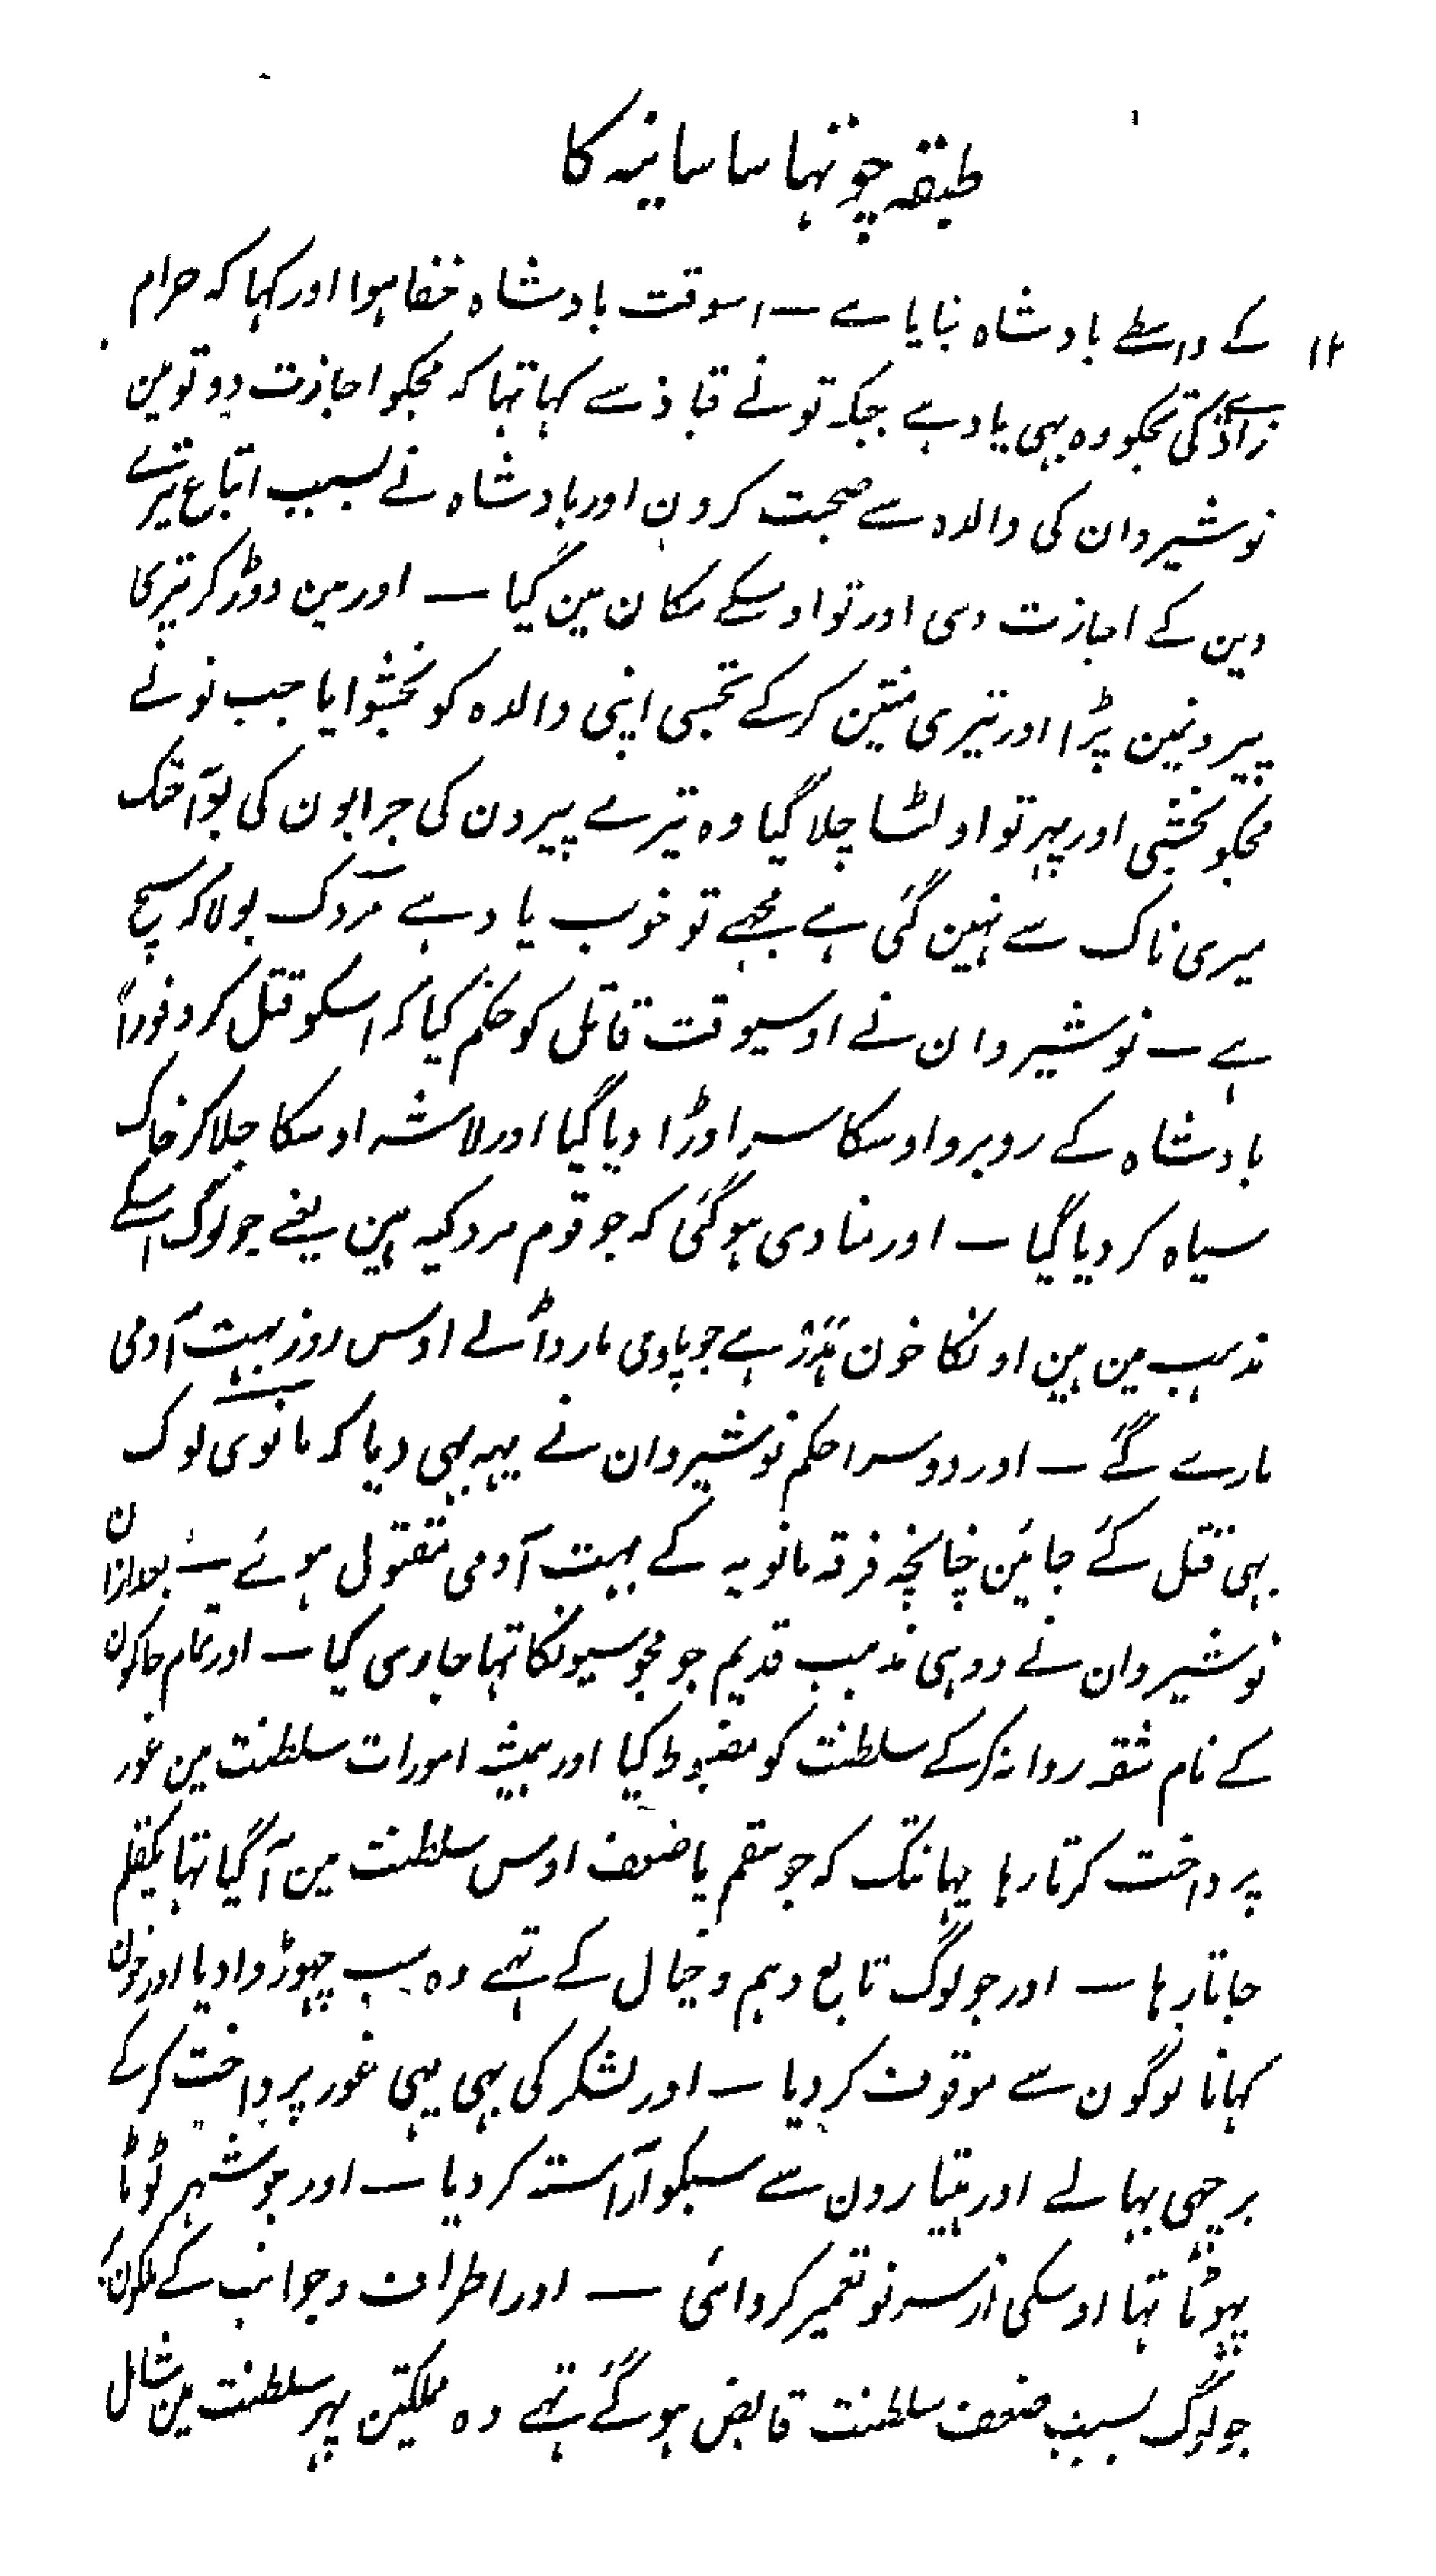 طبقہ چوتہا ساسانیہ کا
۱۲ کے واسطے بادشاہ بنایا ہے ۔ اسوقت بادشاہ خفا ہوا اور کہا کہ حرام
زادے کی تجکو وہ بہی یاد ہے جبکہ تو نے قباذ سے کہا تہا کہ مجکو اجازت دو تو مین
نوشیروان کی والدہ سے صحبت کرون اور بادشاہ نے بسبب اتباع تیرے
دین کے اجازت دی اور تو اوسکے مکان مین گیا ۔ اور مین دوڑ کر تیری
پیرونمین پڑا اور تیری منتین کرکے تجسی اپنی والدہ کو بخشوایا جب تو نے
مجکو بخشی اور پہر تو اولٹا چلا گیا وہ تیرے پیرون کی جرابون کی بو آجتک
میری ناک سے نہین گئی ہے مجھے تو خوب یاد ہے مزدک بولا کہ سچ
ہے ۔ نوشیروان نے اوسیوقت قاتل کو حکم کیا کہ اسکو قتل کر وفوراً
بادشاہ کے روبرو اوسکا سر اوڑا دیا گیا اور لاشہ اوسکا جلا کر خاک
سیاہ کر دیا گیا ۔ اور منادی ہوگئی کہ جو قوم مردکیہ ہین یعنے جو لوگ اسکے
مذہب مین ہین اونکا خون ہدر ہے جو پاوی مار ڈالے اوس روز بہت آدمی
مارے گئے ۔ اور دوسرا حکم نوشیروان نے یہہ بہی دیا کہ مانوی لوک
بہی قتل کئے جائین چنانچہ فرقہ مانویہ کے بہت آدمی مقتول ہوئے ۔ بعدازان
نوشیروان نے ووہی مذہب قدیم جو مجوسیونکا تہا جاری کیا ۔ اور تمام حاکمون
کے نام شقہ روانہ کرکے سلطنت کو مضبوط کیا اور ہمیشہ امورات سلطنت مین غور
پرداخت کرتا رہا یہانتک کہ جو سقم یا ضعف اوس سلطنت مین آگیا تہا یکقلم
جاتا رہا ۔ اور جو لوگ تابع وہم و خیال کے تہے وہ سب چہوڑوا دیا اور خون
کہانا لوگون سے موقوف کر دیا ۔ اور لشکر کی بہی یہی غور پرداخت کرکے
برچہی بہالے اور ہتیارون سے سبکو آراستہ کر دیا ۔ اور جو شہر ٹوٹا
پہوٹا تہا اوسکی ازسر نو تعمیر کروائی ۔ اور اطراف و جوانب کے ملکون پر
جو لوگ بسبب ضعف سلطنت قابض ہوگئے تہے وہ مملکتین پہر سلطنت مین شامل